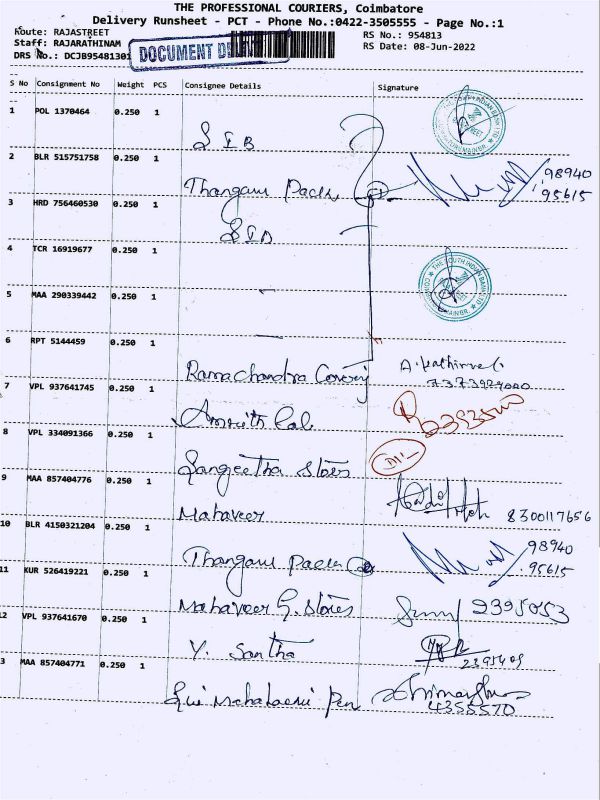 THE PROFESSIONAL COURIERS, Coimbatore
Delivery Runsheet - PCT - Phone No.:0422-3505555 - Page No.:1
Route: RAJASTREET
RS No.: 954813
Staff: RAJARATHINAM
RS Date: 08-Jun-2022
DRS No.: DCJB95481301
DOCUMENT
S No Consignment No Weight PCS Consignee Details Signature
1 POL 1370464 0.250 1
S I B
2 BLR 515751758 0.250 1
98940
Thangam
95615
3 HRD 756460530 0.250 1
S I B
4 TCR 16919677 0.250 1
THE SOUTH INDIAN BANK LTD
5 MAA 290339442 0.250 1
6 RPT 5144459 0.250 1
Ramachandra
A. Kathirvel
7 VPL 937641745 0.250 1
Amrith Lal
8 VPL 334091366 0.250 1
Sangeetha Stores
9 MAA 857404776 0.250 1
Mahaveer 8300117656
10 BLR 4150321204 0.250 1
98940
Thangam
95615
11 KUR 526419221 0.250 1
Mahaveer G. Stores 2395053
12 VPL 937641670 0.250 1
Y. Santha
2395409
3 MAA 857404771 0.250 1
Pen
4355570